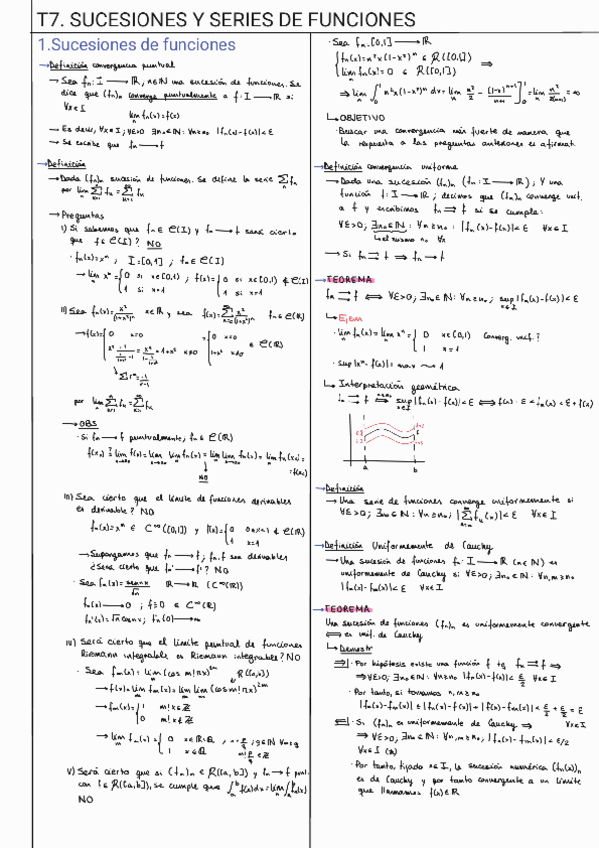 T7. SUCESIONES Y SERIES DE FUNCIONES
1.Sucesiones de funciones
→Definición convergencia puntual
→ Sea fn: I → ℝ, n∈ℕ una sucesión de funciones. Se
dice que (fn)n converge puntualmente a f: I → ℝ si
∀x∈I
lim fn(x)=f(x)
→ Es decir, ∀x∈I; ∀ε>0 ∃n0∈ℕ: ∀n≥n0 |fn(x)-f(x)|<ε
→ Se escribe que fn → f
→Definición
→Dada (fn)n sucesión de funciones. Se define la serie Σ fn
por lim Σ fn = Σ fn
→ Preguntas
I) Si sabemos que fn ∈ C(I) y fn → f será cierto
que f∈C(I)? NO
· fn(x)=xⁿ ; I=[0,1] ; fn∈C(I)
→ lim xⁿ = {0 si x∈[0,1) ; f(x)= {0 si x∈[0,1) ∉ C(I)
1 si x=1 1 si x=1
II) Sea fn(x)= x²/(1+x²)ⁿ x∈ℝ y sea f(x)= Σ x²/(1+x²)ⁿ fn∈C(ℝ)
→f(x)= {0 x=0 = {0 x=0 ∉ C(ℝ)
por lim Σ fn = Σ fn
→ OBS
· Si fn → f puntualmente, fn∈C(ℝ)
NO
III) Sea cierto que el límite de funciones derivables
es derivable? NO
fn(x)=xⁿ ∈ C^∞([0,1]) y f(x)= {0 0≤x<1 ∉ C(ℝ)
1 x=1
→Supongamos que fn → f; fn, f son derivables
¿Sera cierto que fn' → f'? NO
· Sea fn(x)= sen nx/√n ℝ→ℝ (C^∞(ℝ))
fn(x) → 0 ; f≡0 ∈ C^∞(ℝ)
fn'(x)=√n cos nx ; fn'(0) → ∞
IV) Será cierto que el límite puntual de funciones
Riemann integrables es Riemann integrable? NO
· Sea fm(x)= lim (cos m!πx)^2n ∈ R([0,1])
→ f(x)=lim fm(x)= lim lim (cos m!πx)^2m
→ fm(x)= {1 m!x∈ℤ
0 m!x∉ℤ
→ lim fm(x) = {0 x∈ℝ\ℚ
1 x∈ℚ
V) Será cierto que si (fn)n ∈ R([a,b]) y fn → f punt.
con f∈R([a,b]), se cumple que ∫ f(x)dx = lim ∫ fn(x)dx)
NO
· Sea fn: [0,1] → ℝ
{fn(x)= n²x(1-x²)ⁿ ∈ R([0,1])
lim fn(x)=0 ∈ R([0,1]) ⇒
⇒ lim ∫₀¹ n²x(1-x²)ⁿ dx = lim n²/2 · -(1-x²)ⁿ⁺¹/(n+1) |₀¹ = lim n²/2(n+1) = ∞
↳ OBJETIVO
·Buscar una convergencia más fuerte de manera que
la respuesta a las preguntas anteriores es afirmat.
→Definición convergencia uniforme
→ Dada una sucesión (fn)n (fn: I → ℝ) ; Y una
función f: I → ℝ ; decimos que (fn)n converge unif.
a f y escribimos fn ⇉ f si se cumple:
∀ε>0; ∃n0∈ℕ: ∀n≥n0: |fn(x)-f(x)|<ε ∀x∈I
↳el mismo n0 ∀x
→ Si fn ⇉ f ⇒ fn → f
→ TEOREMA
fn ⇉ f ⇔ ∀ε>0; ∃n0∈ℕ: ∀n≥n0; sup |fn(x)-f(x)|<ε
x∈I
↳ Ejem
· lim fn(x)= lim xⁿ = {0 x∈[0,1) converg. unif.?
1 x=1
· sup|xⁿ-f(x)|= max → 1
↳ Interpretación geométrica
fn ⇉ f ⇔ sup|fn(x)-f(x)|<ε ⇔ f(x)-ε<fn(x)<ε+f(x)
a b
→Definición
→ Una serie de funciones converge uniformemente si
∀ε>0; ∃n0∈ℕ: ∀n≥n0; |Σ fk(x)|<ε ∀x∈I
→Definición Uniformemente de Cauchy
→Una sucesión de funciones fn: I → ℝ (n∈ℕ) es
uniformemente de Cauchy si ∀ε>0; ∃n0∈ℕ: ∀n,m≥n0
|fn(x)-fm(x)|<ε ∀x∈I
→ TEOREMA
Una sucesión de funciones (fn)n es uniformemente convergente
⇔ es unif. de Cauchy
↳ Demostr
⇒| · Por hipótesis existe una función f tq fn ⇉ f ⇒
⇒∀ε>0; ∃n0∈ℕ: ∀n≥n0: |fn(x)-f(x)|< ε/2 ∀x∈I
·Por tanto, si tomamos n,m≥n0
|fn(x)-fm(x)| ≤ |fn(x)-f(x)| + |f(x)-fm(x)| < ε/2 + ε/2 = ε
⇐| · Si (fn)n es uniformemente de Cauchy ⇒
⇒ ∀ε>0; ∃n0∈ℕ: ∀n,m≥n0, |fn(x)-fm(x)|<ε/2
∀x∈I (*)
·Por tanto, fijado x∈I, la sucesión numérica (fn(x))n
es de Cauchy y por tanto convergente a un límite
que llamamos f(x)∈ℝ